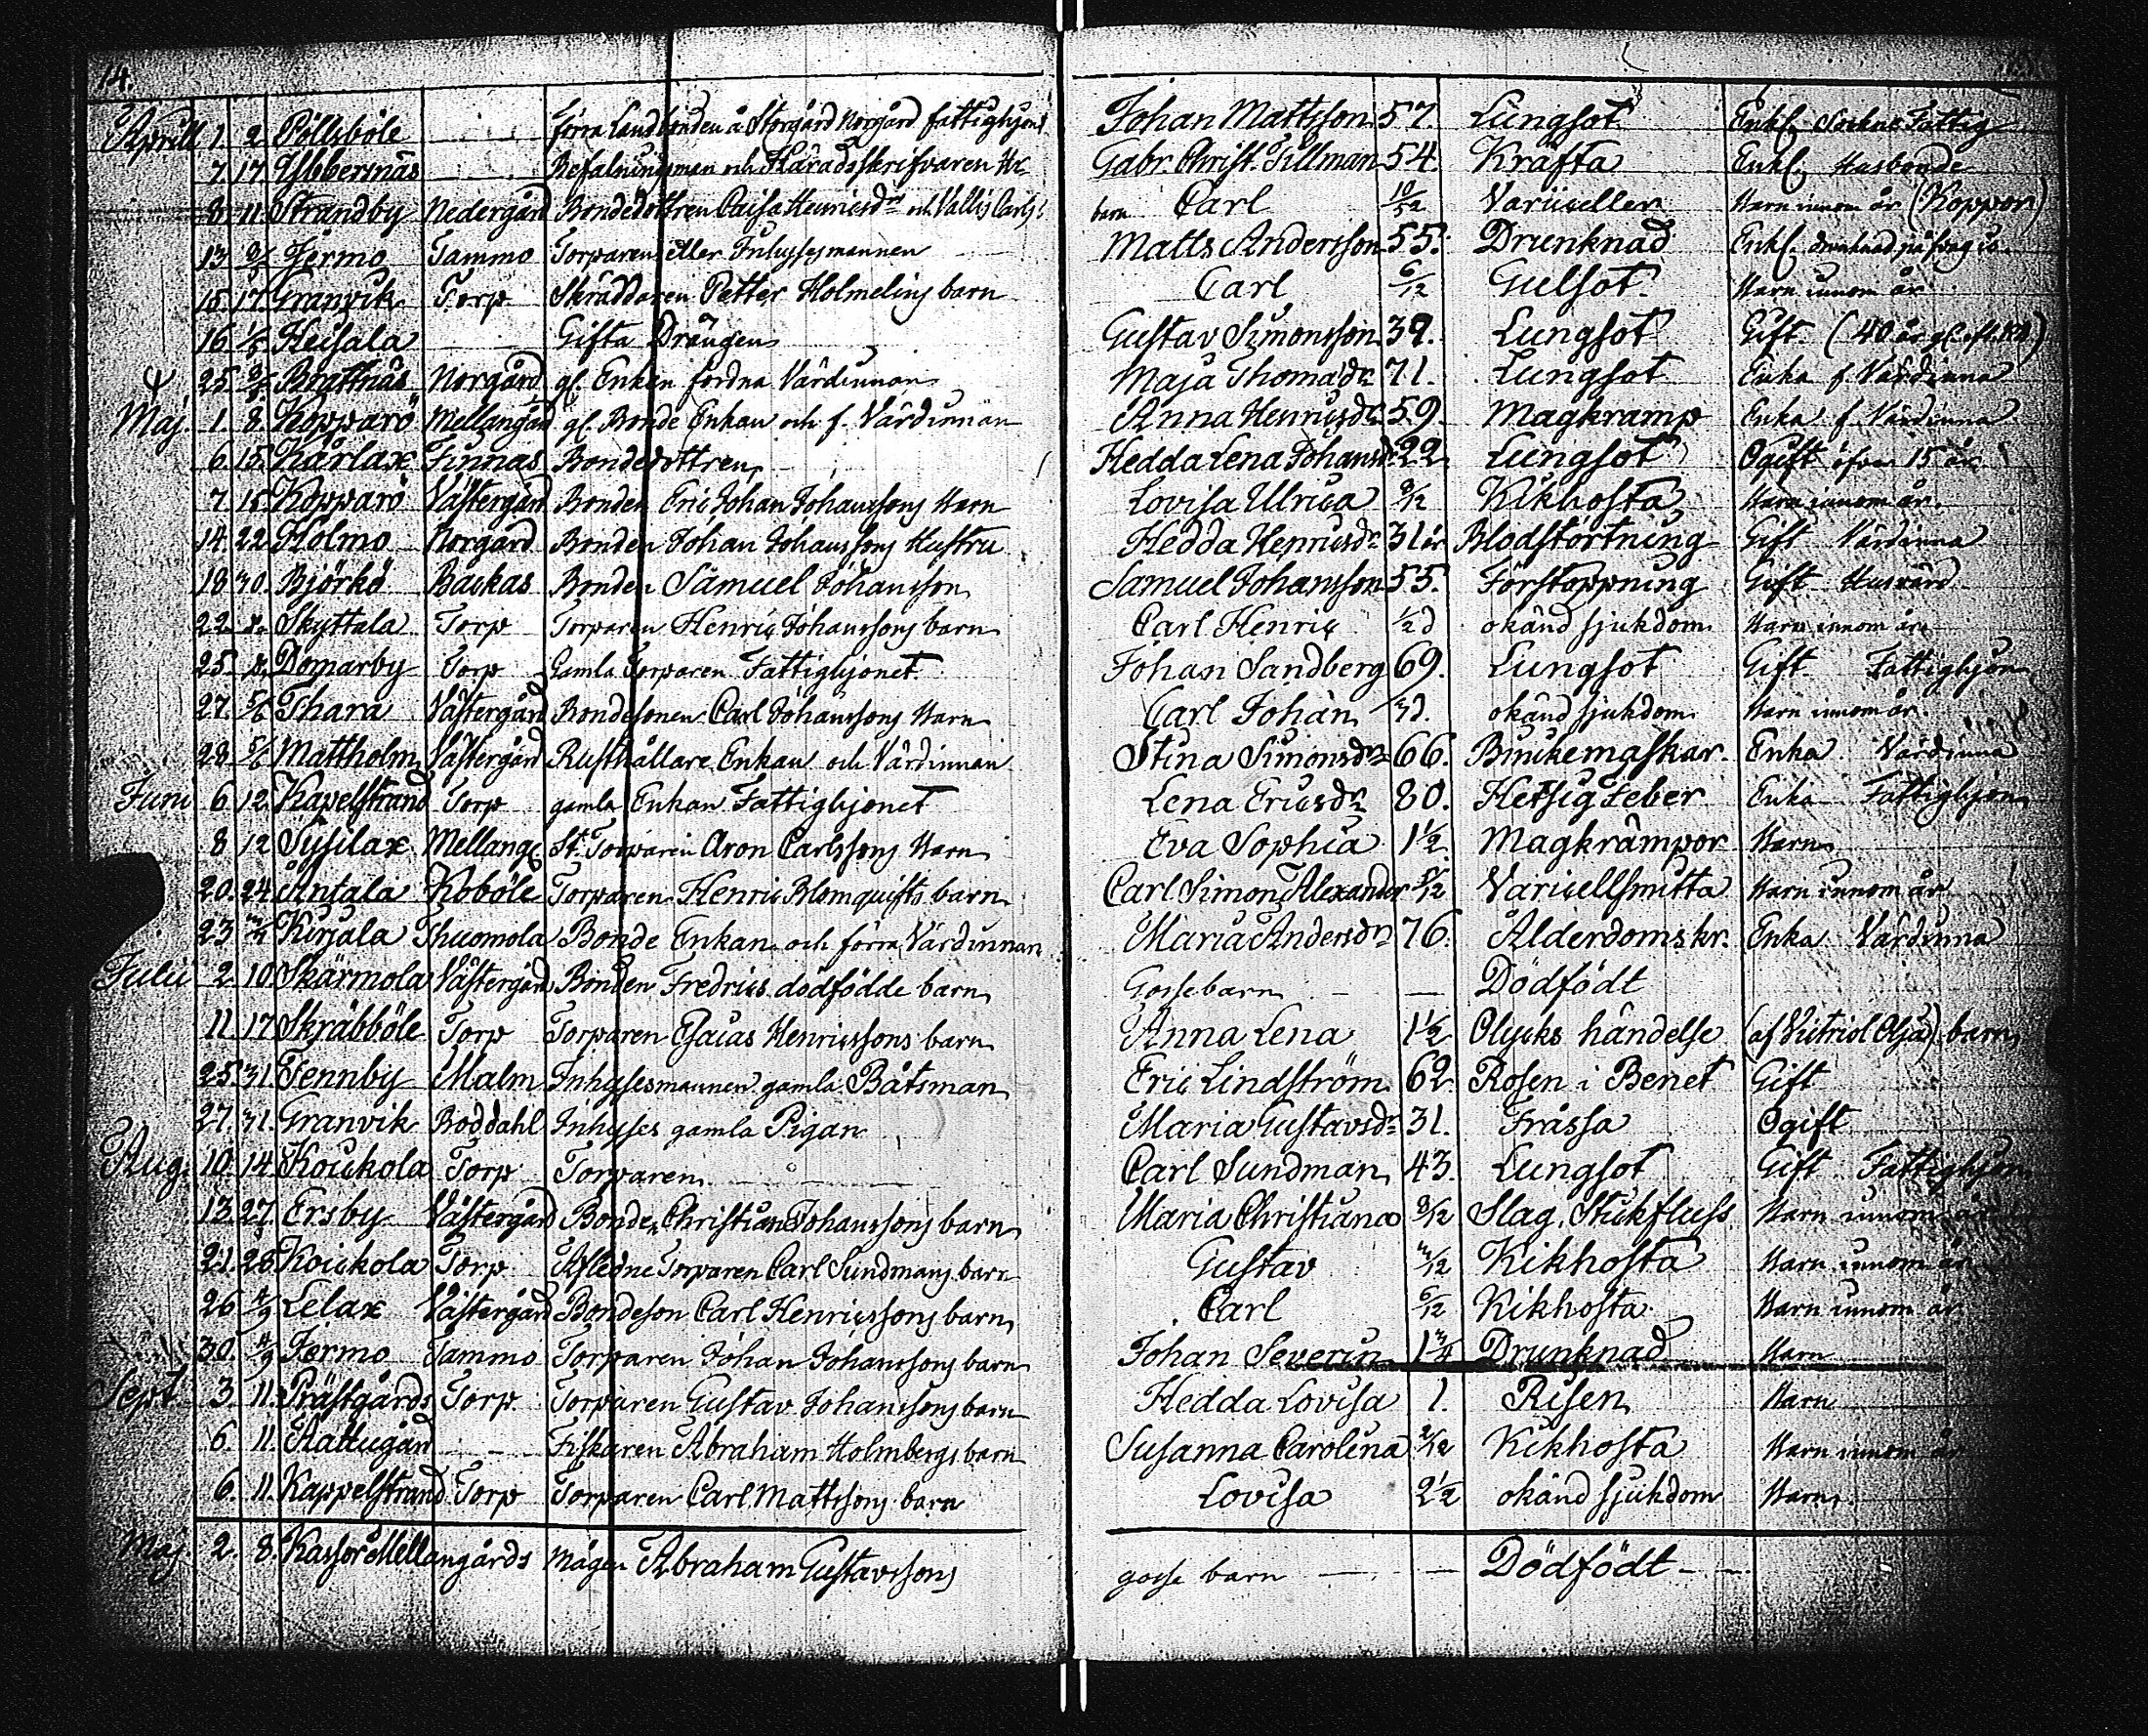 14.
Aprill 1. 2. Pollsböle förra Landbonden å Storgård Norgård fattighjons Johan Mattsson 57 Lungsot Enkl. Sockne Fattig
7. 17 Ybbersnäs Befalningsman och Häradsskrifvaren Hr Gabr. Christ. Tillman 54. Kräfta Enkl. Husbonde
8. 11. Strandby Nedergård Bondedottren Caisa Henricsdr och Vallis Carls barn Carl 10/12 Variceller Barn innom år (Koppor)
13 9/5 Jermo Tammo Torparen eller Inhysesmannen Matts Andersson 55. Drunknad Enkl. drunknad på svag is
15. 17. Granvik Torp Skräddaren Petter Holmelins barn Carl 6/12 Gulsot Barn innom år
16 1/5 Heisala Gifta Drängen Gustav Simonsson 39. Lungsot Gift (40 år
25. 9/5 Brattnäs Norgård gl. Enkan fordna Värdinnan Maja Thomadr 71. Lungsot Enka f. Värdinna
Maj. 1. 8. Kopparö Mellangård gl. Bonde Enkan och f. Värdinnan Anna Henricsdr 59. Magkramp Enka f. Värdinna
6. 15. Kårlax Finnas Bondedottren Hedda Lena Johansdr 22. Lungsot Ogift öfver 15 år
7. 15. Kopparö Västergård Bonden Eric Johan Johanssons Barn Lovisa Ulrica 9/12 Kikhosta Barn innom år.
14. 22 Holmo Norgård Bonden Johan Johanssons Hustru Hedda Henricsdr 31 år Blodstörtning Gift Värdinna
18 30. Björkö Backas Bonden Samuel Johansson Samuel Johansson 55. Förstoppning Gift Husvärd
22. Skyttala Torp Torparen Henric Johanssons barn Carl Henric 1/2 d okänd sjukdom Barn innom år
25. Domarby Torp Gamla Torparen Fattighjonet Johan Sandberg 69. Lungsot Gift Fattighjon
27. 5/6 Thara Västergård Bondesonen Carl Johanssons Barn Carl Johan 3/d. okänd sjukdom Barn innom år.
28 5/6 Mattholm Västergård Rusthållare Enkan och Värdinnan Stina Simonsdr 66. Binikemaskar. Enka Värdinna
Juni 6 12. Kapelstrand Torp gamla Enkan Fattighjonet Lena Ericsdr 80. Hetsig Feber Enka Fattighjon
8 12 Sysilax Mellang St. Torparen Aron Carlssons Barn Eva Sophia 1 1/2. Magkrämpor Barn
20. 24. Antala Koböle Torparen Henric Blomquists barn Carl Simon Alexander 5/12 Varicellsmitta Barn innom år
23 Kirjala Thuomola Bonde Enkan och förra Värdinnan Maria Andersdr 76. Ålderdomskr. Enka Värdinna
Julii 2. 10. Skärmola Västergård Bonden Fredrics dödfödde barn Gossebarn — — Dödfödt
11. 17. Skräbböle Torp Torparen Esaias Henricssons barn Anna Lena 1 1/2 Olycks händelse (af Vitriol Olja) barn
25. 31. Tennby Malm Inhysesmannen gamla Båtsman Eric Lindström 62. Rosen i Benet Gift
27. 31. Granvik Boddahl Inhyses gamla Pigan Maria Gustavsdr 31. Frässa Ogift
Aug. 10. 14. Kouckola Torp Torparen Carl Sundman 43. Lungsot Gift Fattighjon
13. 27. Ersby Västergård Bonden Christian Johanssons barn Maria Christiana 9/12 Slag, Stickfluss Barn innom år
21. 28. Koickola Torp Aflidne Torparen Carl Sundmans barn Gustav 3/12 Kikhosta Barn innom år
26 4/9 Lelax Västergård Bondeson Carl Henricssons barn Carl 6/12 Kikhosta Barn innom år
30. 4/9 Jermo Tammo Torparen Johan Johanssons barn Johan Severin 1 3/4 Drunknad Barn
Sept. 3. 11. Prästgårds Torp Torparen Gustav Johanssons barn Hedda Lovisa 1. Risen Barn
6. 11. Kattugård Fiskaren Abraham Holmbergs barn Susanna Carolina 2/12 Kikhosta Barn innom år
6. 11. Kappelstrand Torp Torparen Carl Mattssons barn Lovisa 2 1/2 okänd sjukdom Barn
Maj 2. 8. Kassor Mellangårds mågen Abraham Gustavssons gosse barn — — Dödfödt — —